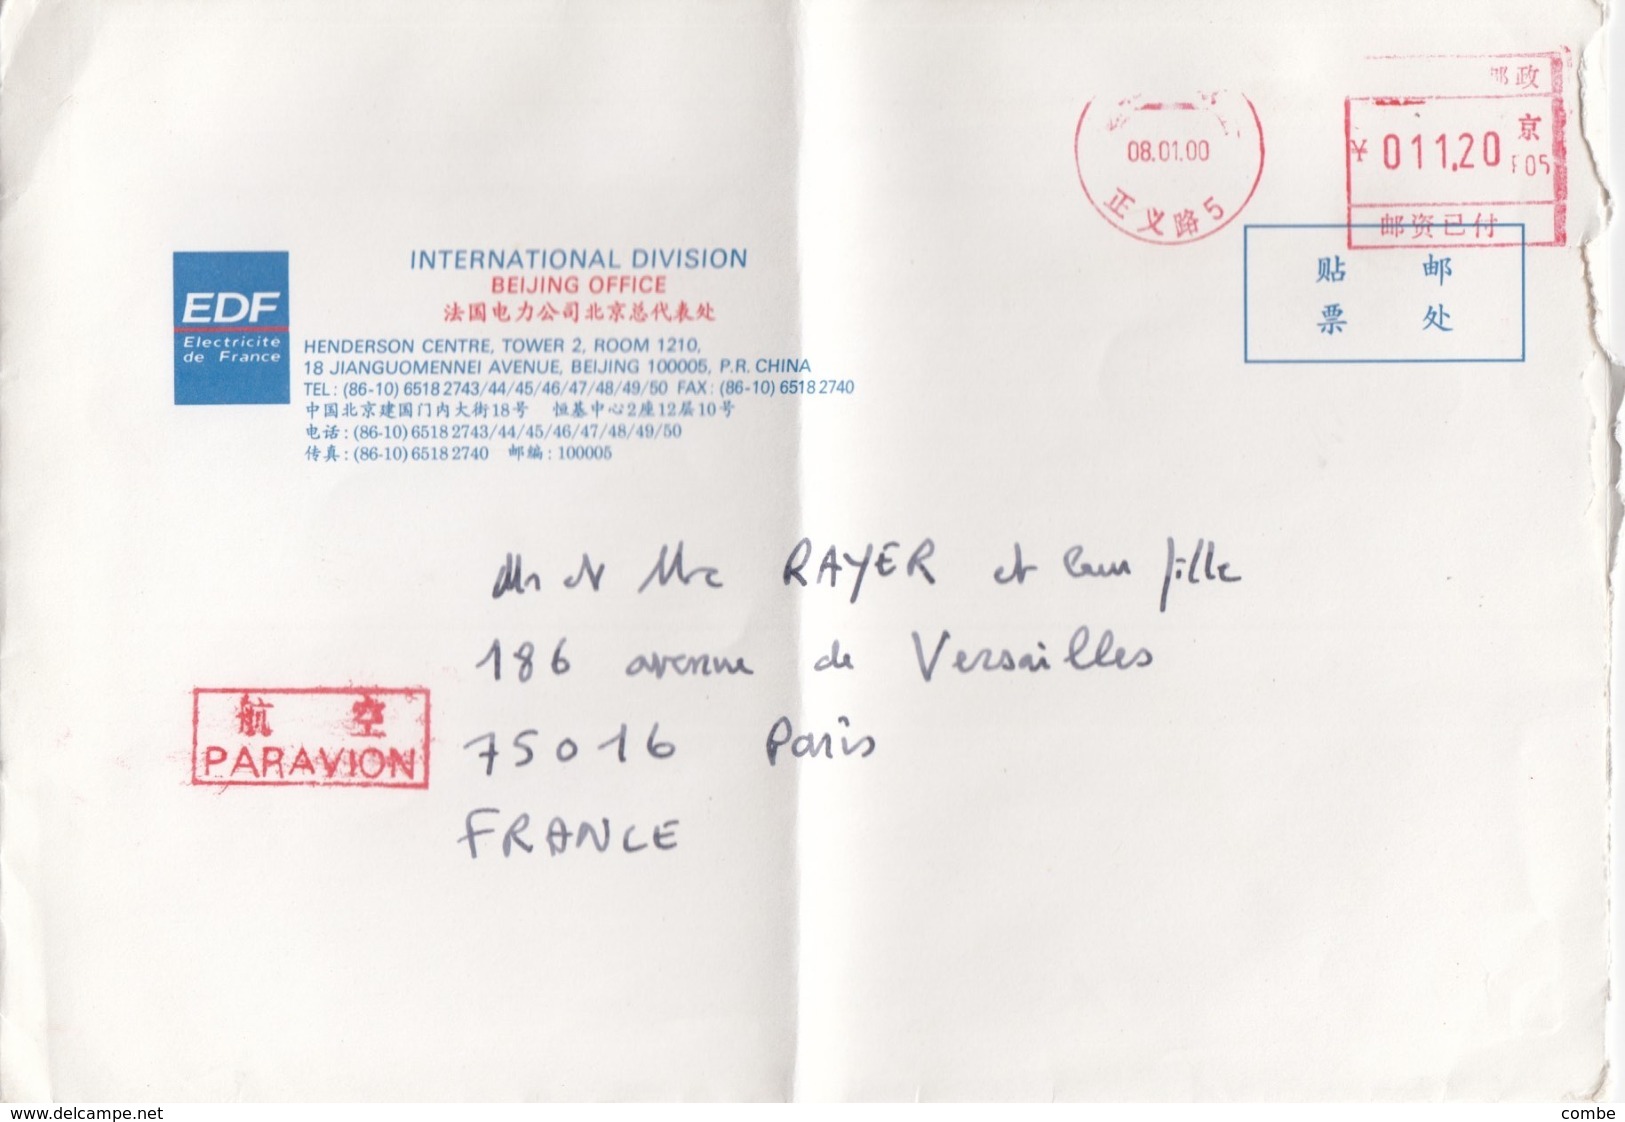 邮政
京
08.01.00
¥ 011.20 F05
正义路5
邮资已付
贴 邮
票 处
EDF
Electricité
de France
INTERNATIONAL DIVISION
BEIJING OFFICE
法国电力公司北京总代表处
HENDERSON CENTRE, TOWER 2, ROOM 1210,
18 JIANGUOMENNEI AVENUE, BEIJING 100005, P.R. CHINA
TEL : (86-10) 6518 2743/44/45/46/47/48/49/50 FAX : (86-10) 6518 2740
中国北京建国门内大街18号 恒基中心2座12层10号
电话 : (86-10) 6518 2743/44/45/46/47/48/49/50
传真 : (86-10) 6518 2740 邮编 : 100005
Mr et Mme RAYER et leur fille
186 avenue de Versailles
75016 Paris
FRANCE
航 空
PARAVION
www.delcampe.net
combe